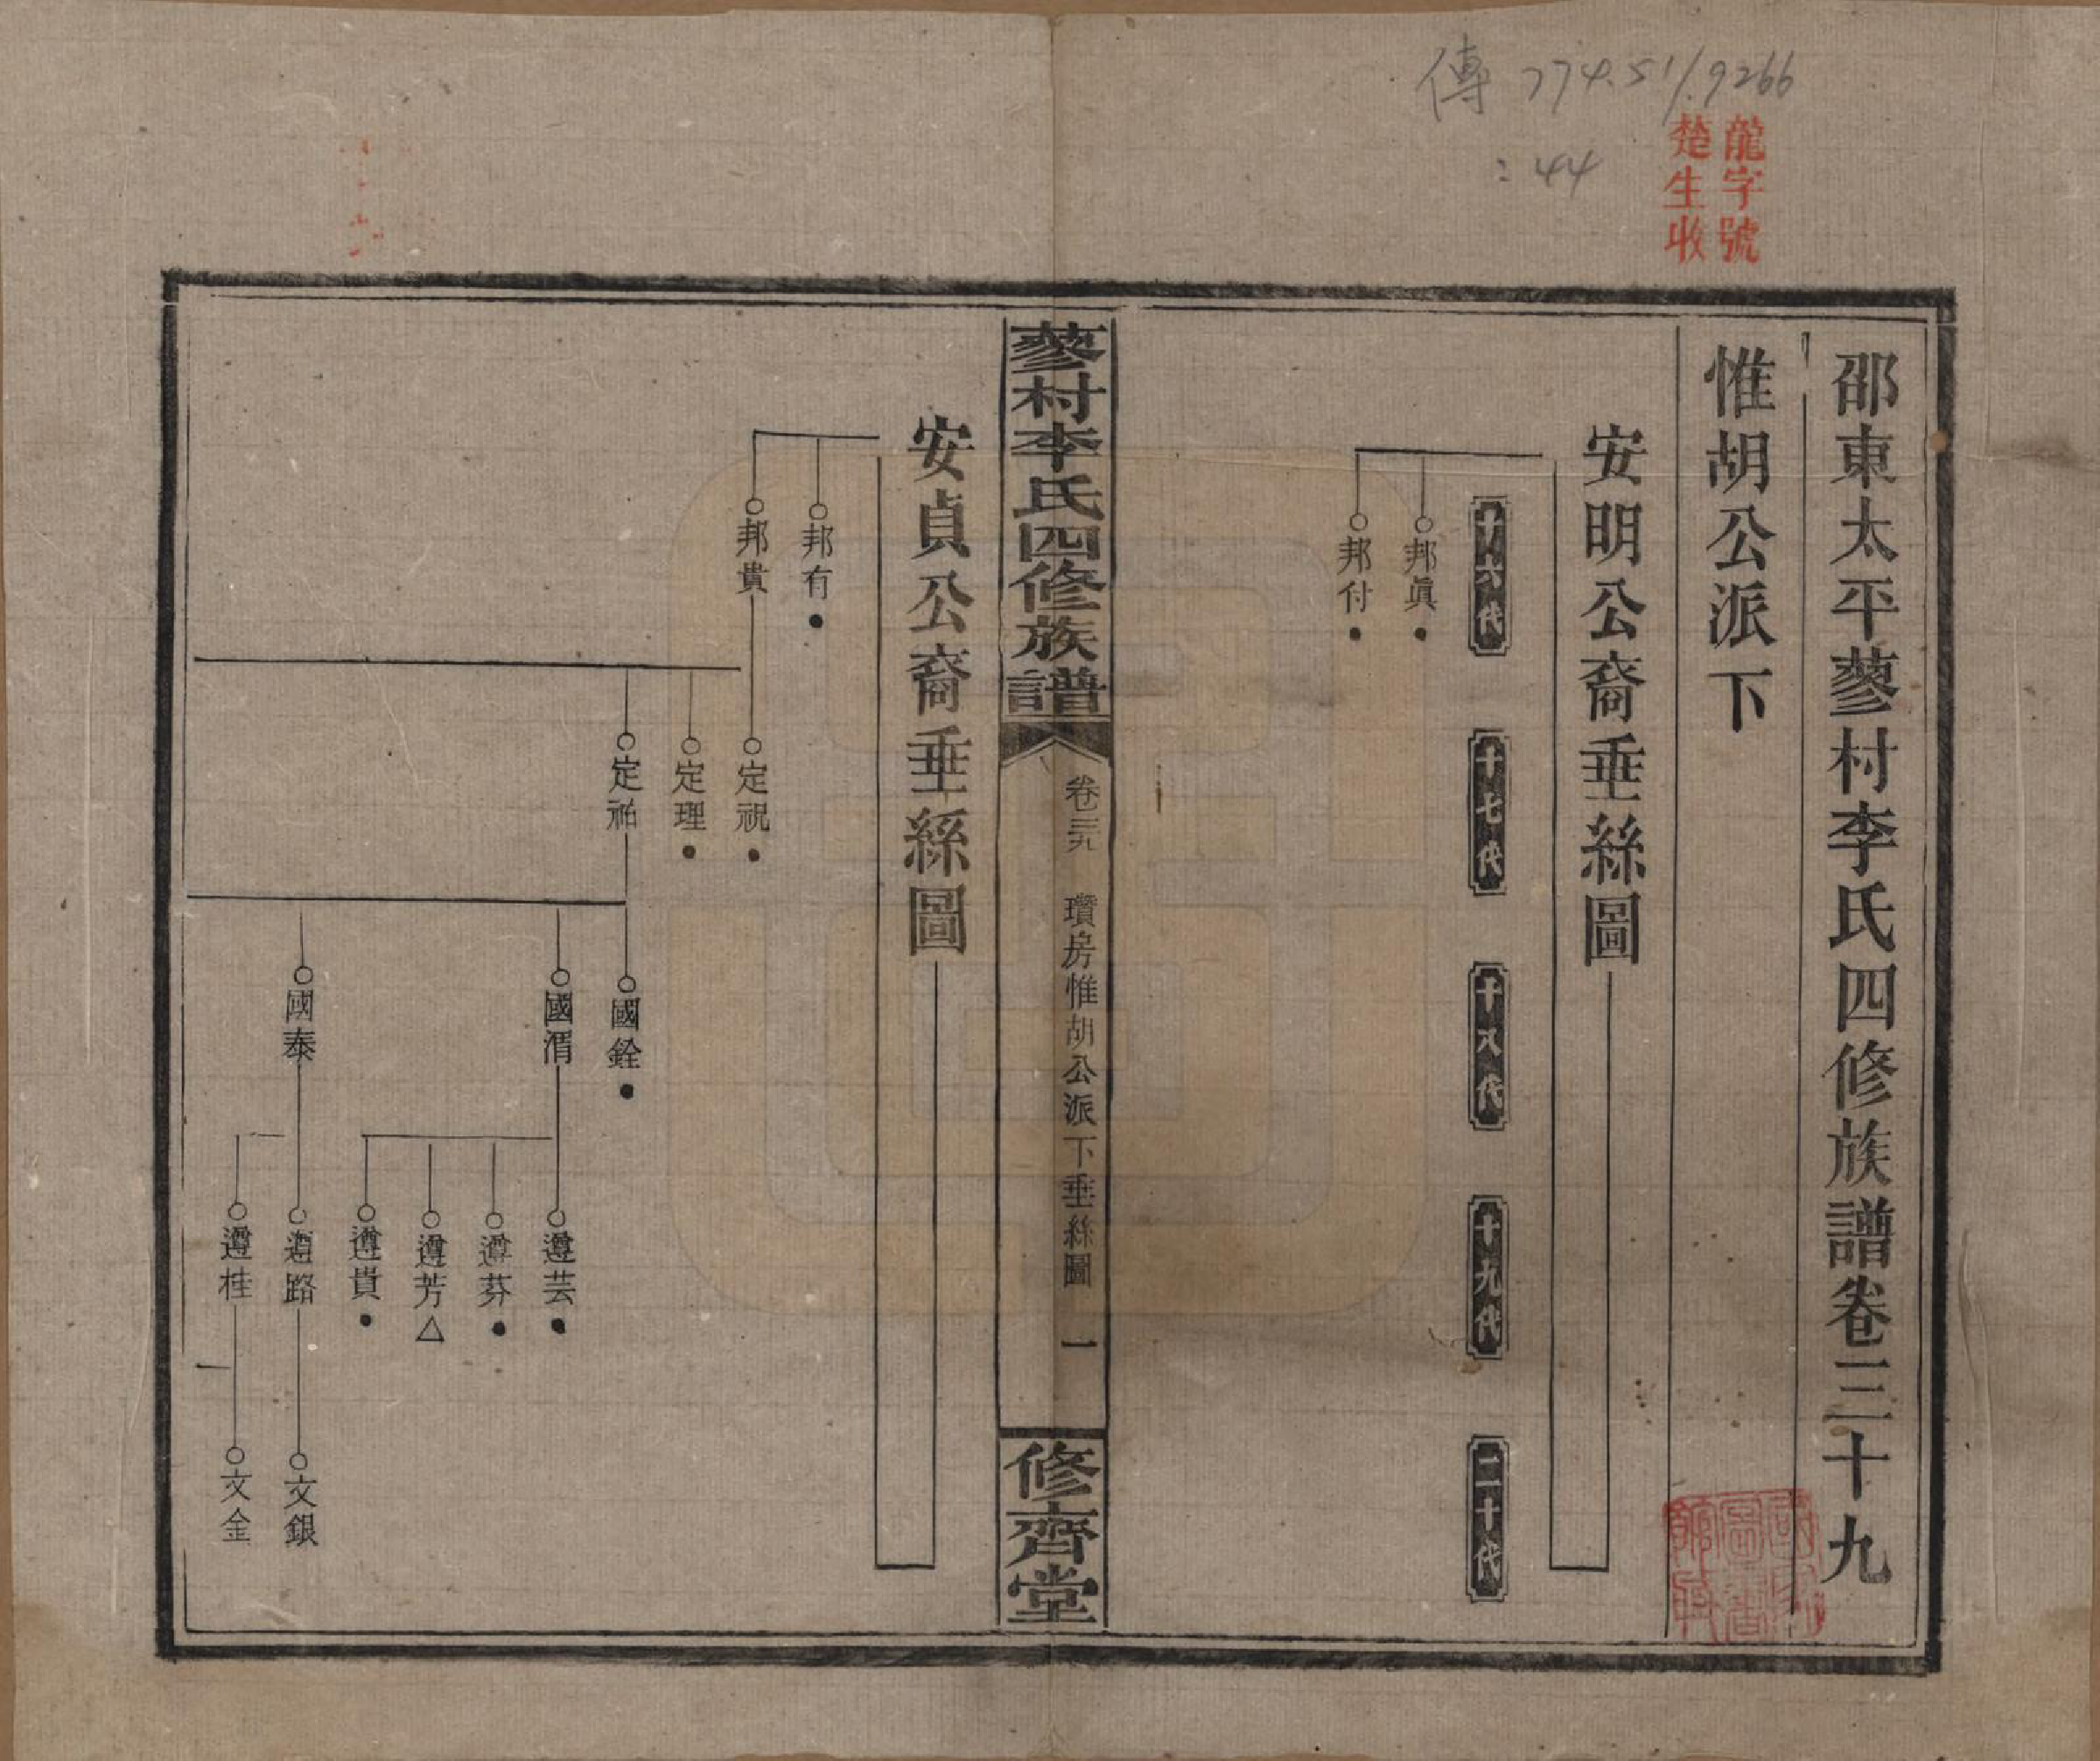 傳 774.51/.9266
:44
龍字號
楚生收
邵東太平蓼村李氏四修族譜卷三十九
惟胡公派下
安明公裔垂絲圖
十六代
十七代
十八代
十九代
二十代
邦眞
邦付
蓼村李氏四修族譜
卷三十九
瓚房惟胡公派下垂絲圖
一
修齊堂
安貞公裔垂絲圖
邦有
邦貴
定祝
定理
定袙
國銓
國渭
國泰
遵芸
遵芬
遵芳
遵貴
遵路
遵桂
文銀
文金